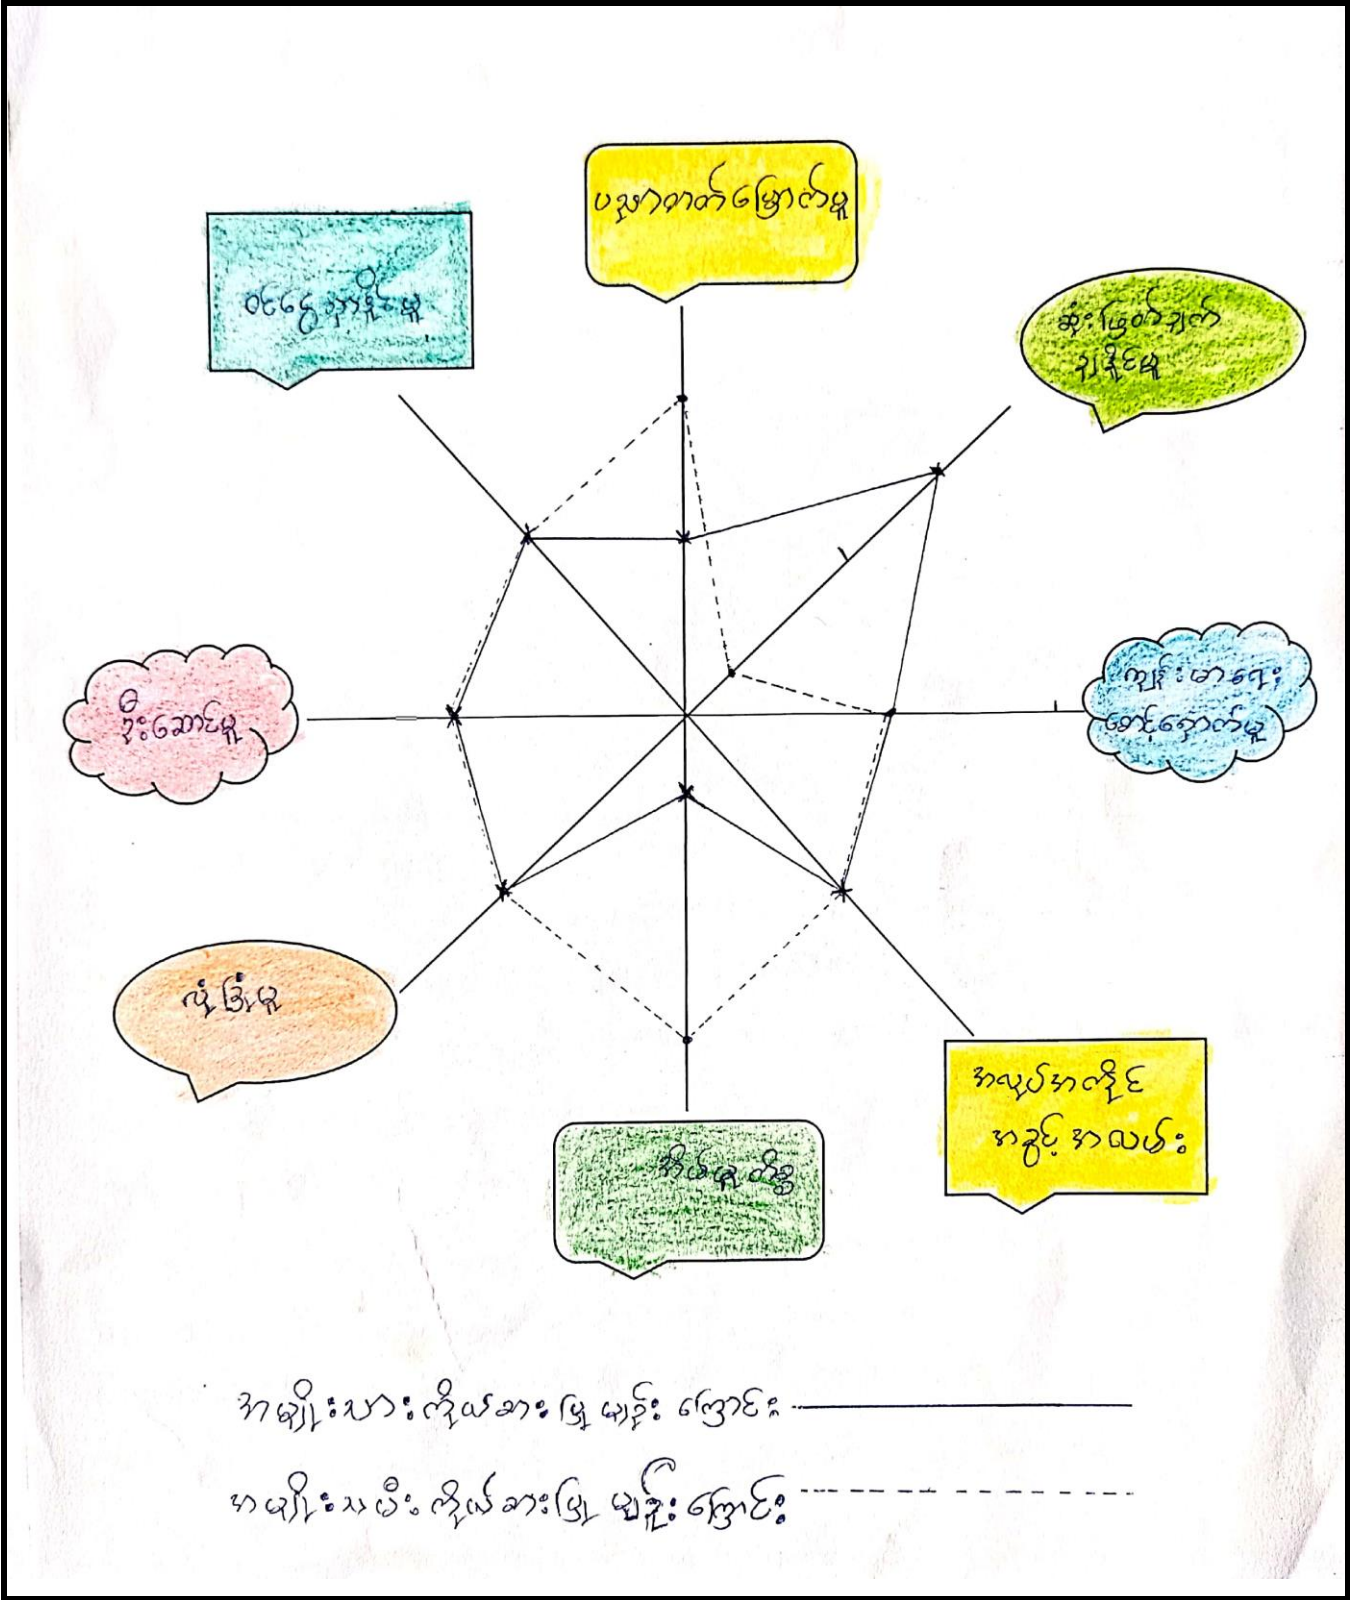 ပညာတတ်မြောက်မှု
ဝင်ငွေရှာနိုင်မှု
ဆုံးဖြတ်ချက်
ချနိုင်မှု
ကျန်းမာရေး
စောင့်ရှောက်မှု
ဦးဆောင်မှု
လုံခြုံမှု
အလုပ်အကိုင်
အခွင့်အလမ်း
အိမ်မှုကိစ္စ
အမျိုးသားကိုယ်စားပြုမျဉ်းကြောင်း
အမျိုးသမီးကိုယ်စားပြုမျဉ်းကြောင်း